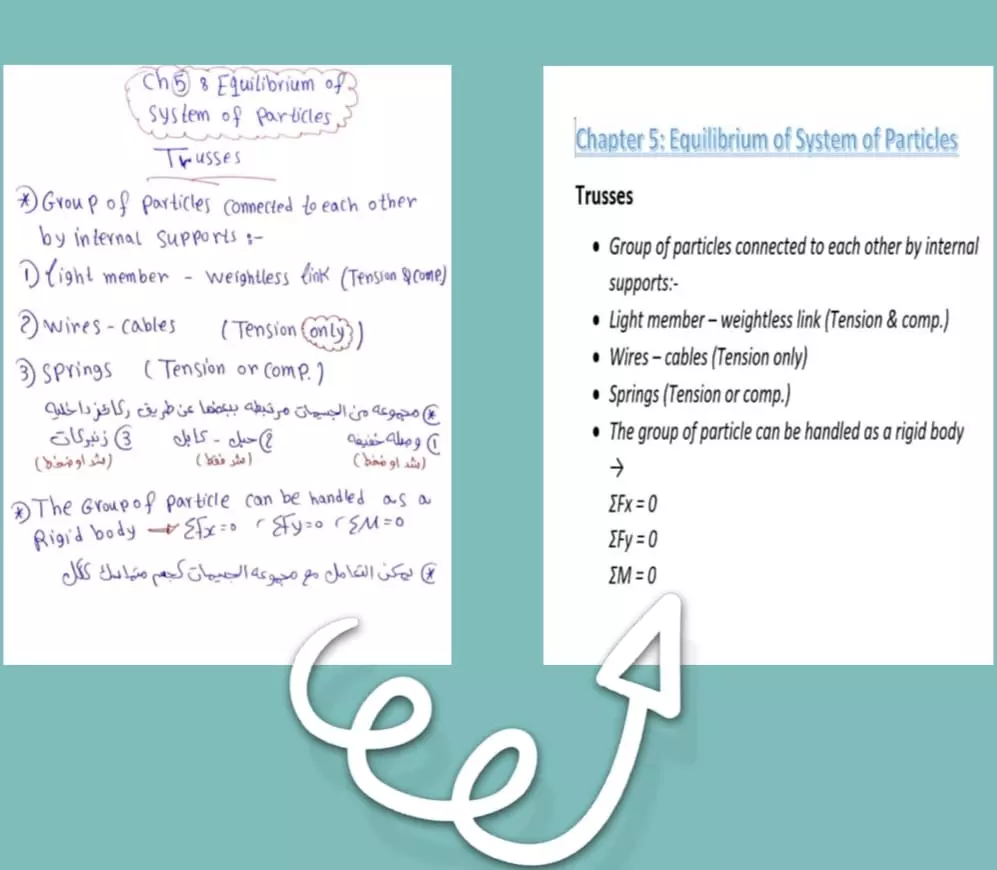 Ch 5 : Equilibrium of
system of particles
Trusses
*) Group of particles connected to each other
by internal supports :-
1) light member - weightless link (Tension & comp)
2) wires - cables (Tension only)
3) springs (Tension or comp.)
*) مجموعه من الجسيمات مرتبطه ببعضها عن طريق ركائز داخليه
1) وصله خفيفه 2) حبل - كابل 3) زنبركات
(شد او ضغط) (شد فقط) (شد او ضغط)
*) The Group of particle can be handled as a
Rigid body → ΣFx=0 , ΣFy=0 , ΣM=0
*) يمكن التعامل مع مجموعه الجسيمات كجسم متماسك ككل
Chapter 5: Equilibrium of System of Particles
Trusses
• Group of particles connected to each other by internal
supports:-
• Light member – weightless link (Tension & comp.)
• Wires – cables (Tension only)
• Springs (Tension or comp.)
• The group of particle can be handled as a rigid body
→
ΣFx = 0
ΣFy = 0
ΣM = 0